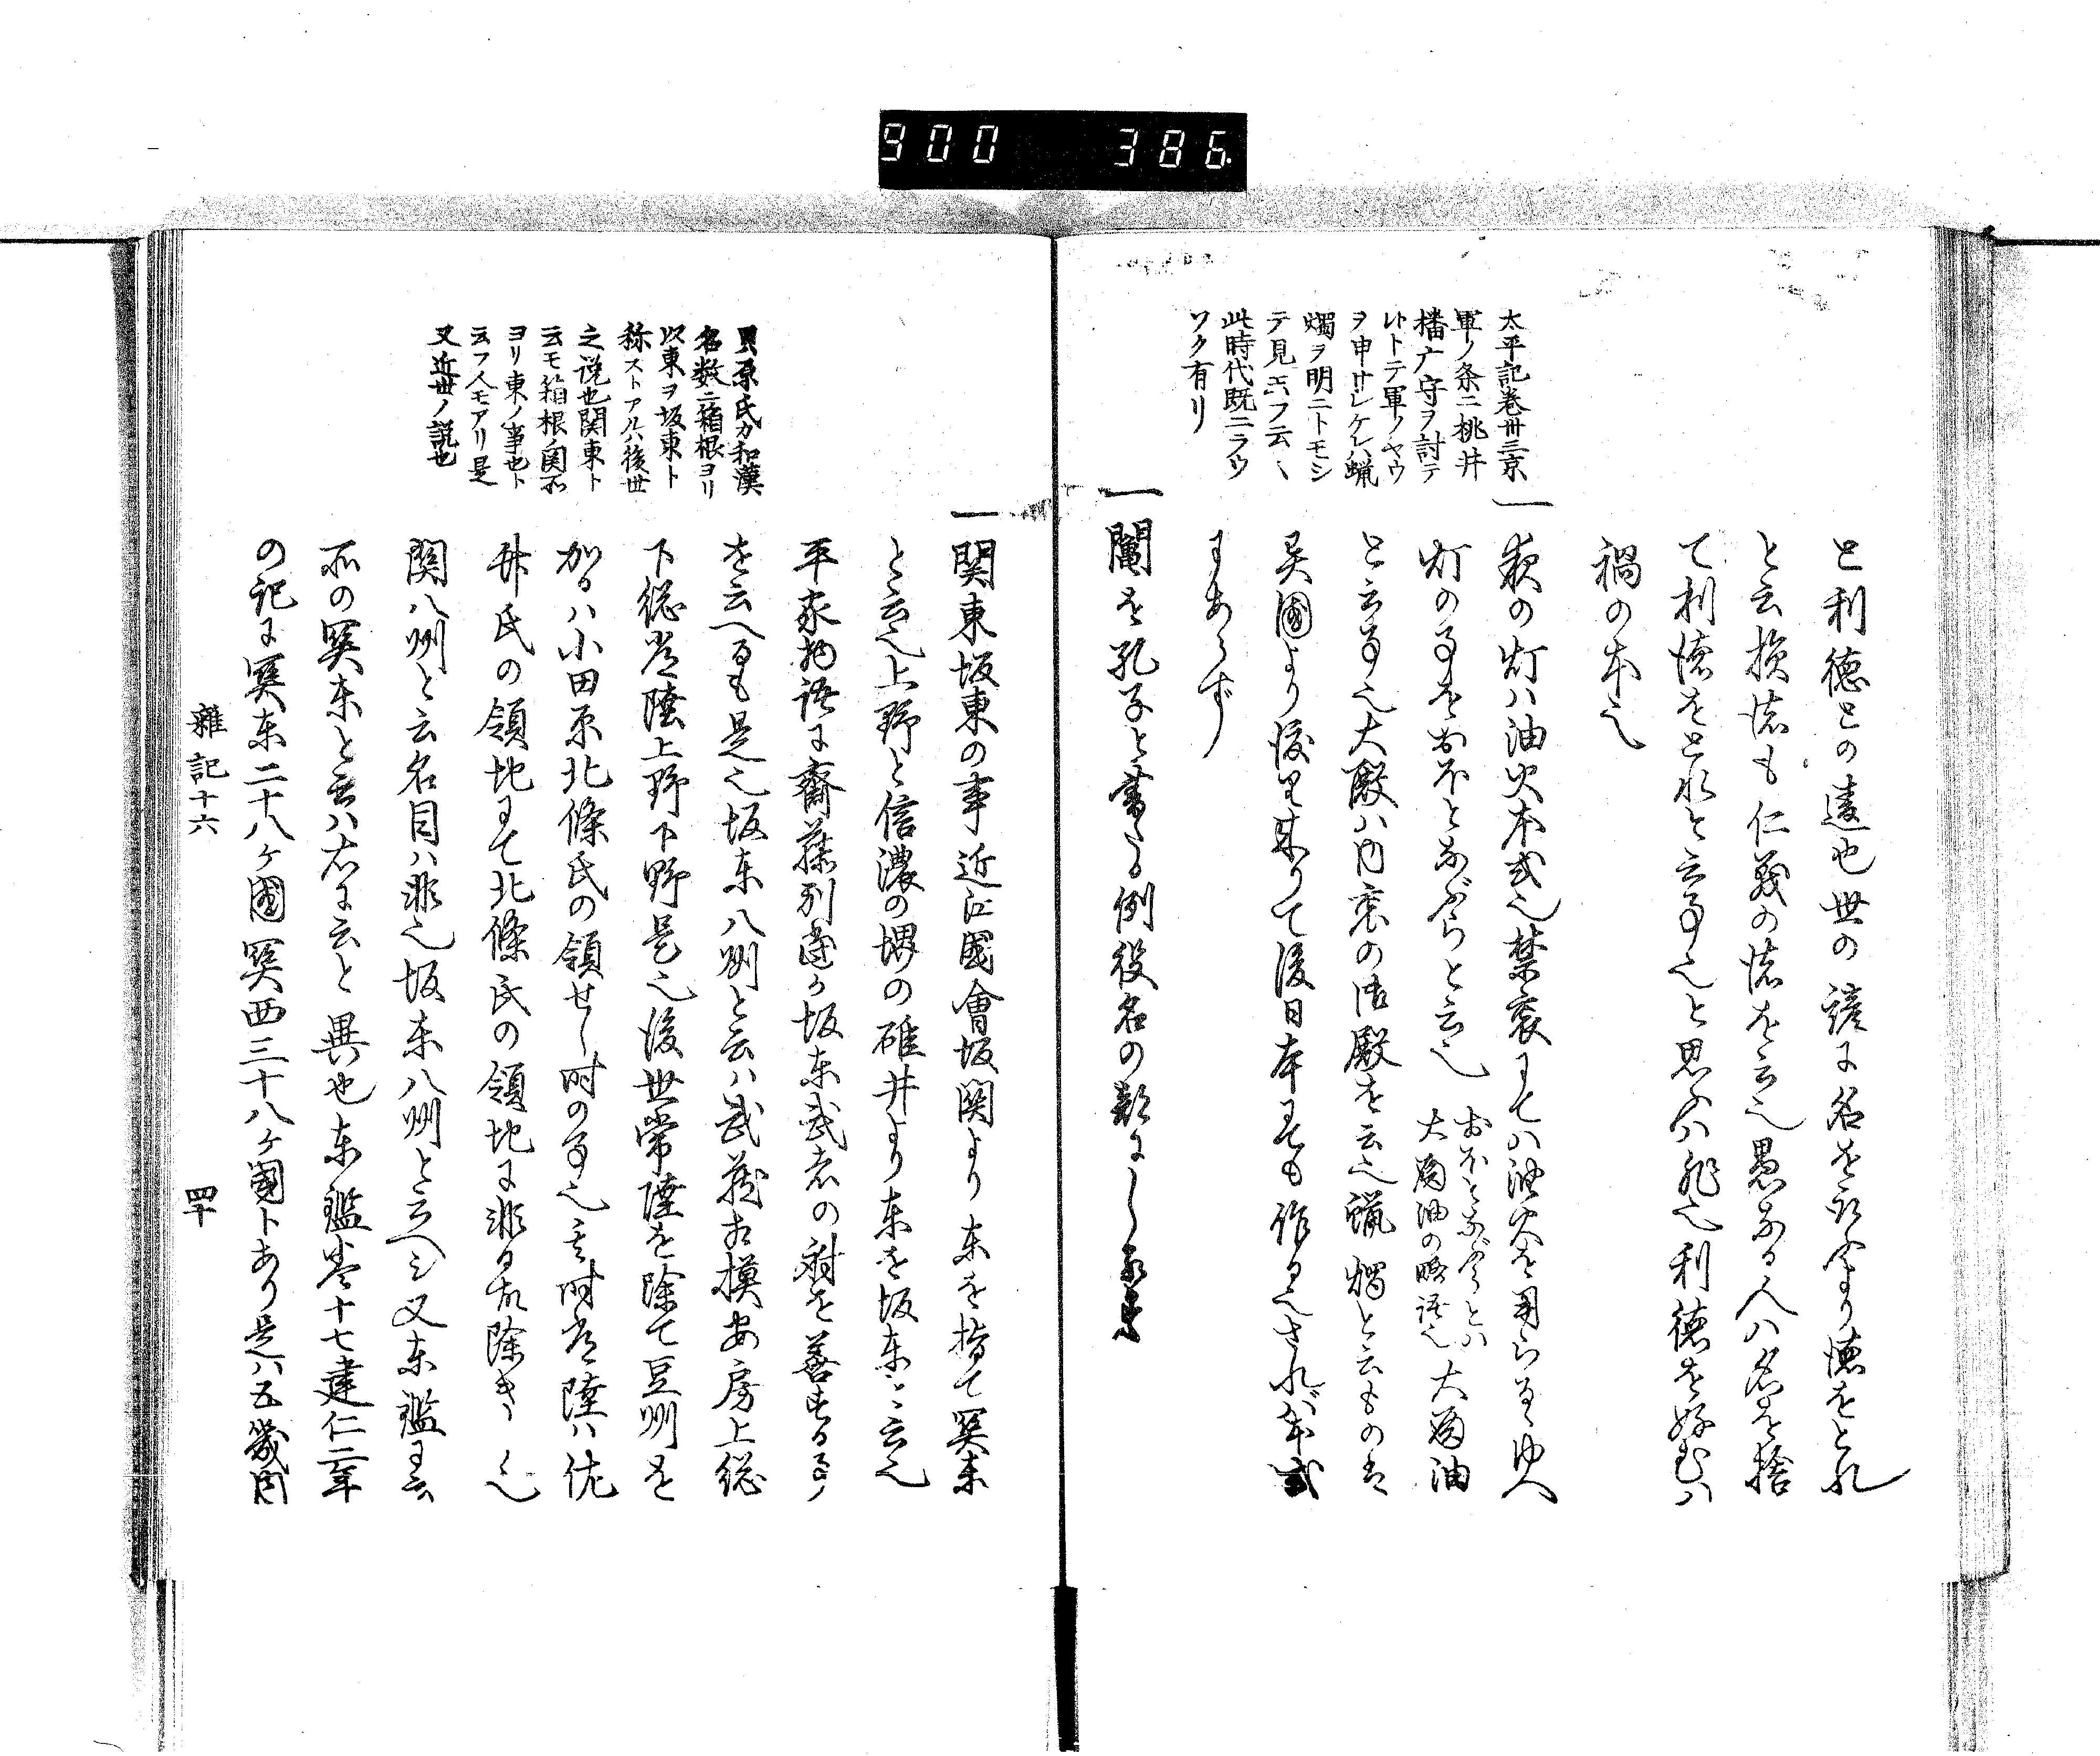 900 386
太平記巻卅三京
軍ノ条ニ桃井
播广守ヲ討テ
ハトテ軍ノヤウ
ヲ申サレケレハ蝋
燭ヲ明ニトモシ
テ見玉フ云〻
此時代既ニラウ
ソク有リ
と利徳との違也世の諺に名を取より徳をとれ
と云損徳も仁義の徳を云也愚なる人ハ名を捨
て利徳をとれと云事也と思ふハ非也利徳を好むハ
禍の本也
一夜の灯ハ油火本式也禁裏にてハ油火を用らるゝゆへ
灯の事をおほとなぶらと云也 おほとなぶらとハ大殿油の略語也 大殿油
と云事也大殿ハ内裏の御殿を云也蝋燭と云ものは
異國より渡り来りて後日本にても作る也されば本式
にあらず
一閽を孔子と書たる例役名の部にしるす
貝原氏カ和漢
名数ニ箱根ヨリ
以東ヲ坂東ト
称ストアルハ後世
之説也関東ト
云モ箱根ノ関所
ヨリ東ノ事也ト
云フ人モアリ是
又近世ノ説也
一関東坂東の事近江國會坂関より東を指て関東
と云也上野と信濃の堺の碓井より東を坂東と云也
平家物語に齋藤別當か坂東武者の射を善する事
を云へるも是也坂東八州と云ハ武蔵相模安房上総
下総常陸上野下野是也後世常陸を除て豆州を
加るハ小田原北條氏の領せし時の事也其時常陸ハ佐
竹氏の領地にて北條氏の領地に非る故除きし也
関八州と云名目ハ非也坂東八州と云へし又東鑑に云
所の関東と云ハ右に云と異也東鑑巻十七建仁三年
の記に関東二十八ヶ國関西三十八ヶ國トあり是ハ五畿内
雜記十六
四十